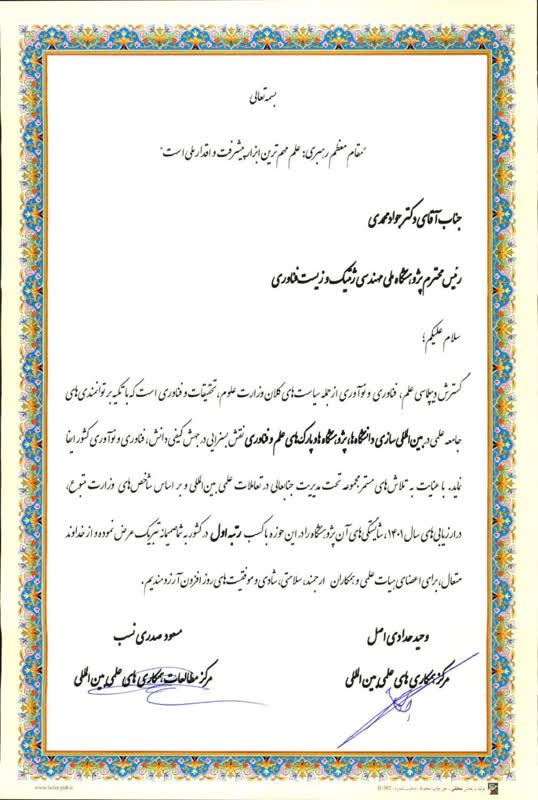 بسمه تعالی
"مقام معظم رهبری: علم مهم ترین ابزار پیشرفت و اقتدار ملی است"
جناب آقای دکتر جواد محمدی
رئیس محترم پژوهشگاه ملی مهندسی ژنتیک و زیست فناوری
سلام علیکم؛
گسترش دیپلماسی علم، فناوری و نوآوری از جمله سیاست های کلان وزارت علوم، تحقیقات و فناوری است که با تکیه بر توانمندی های
جامعه علمی در بین المللی سازی دانشگاه ها، پژوهشگاه ها و پارک های علم و فناوری نقش بسزایی در جهش کیفی دانش، فناوری و نوآوری کشور ایفا
نماید. با عنایت به تلاش های مستمر مجموعه تحت مدیریت جنابعالی در تعاملات علمی بین المللی و بر اساس شاخص های وزارت متبوع،
در ارزیابی های سال ۱۴۰۱، شایستگی های آن پژوهشگاه را در این حوزه با کسب رتبه اول در کشور به شما صمیمانه تبریک عرض نموده و از خداوند
متعال، برای اعضای هیات علمی و همکاران ارجمند، سلامتی، شادی و موفقیت های روز افزون آرزومندیم.
وحید حدادی اصل
مرکز همکاری های علمی بین المللی
مسعود صدری نسب
مرکز مطالعات همکاری های علمی بین المللی